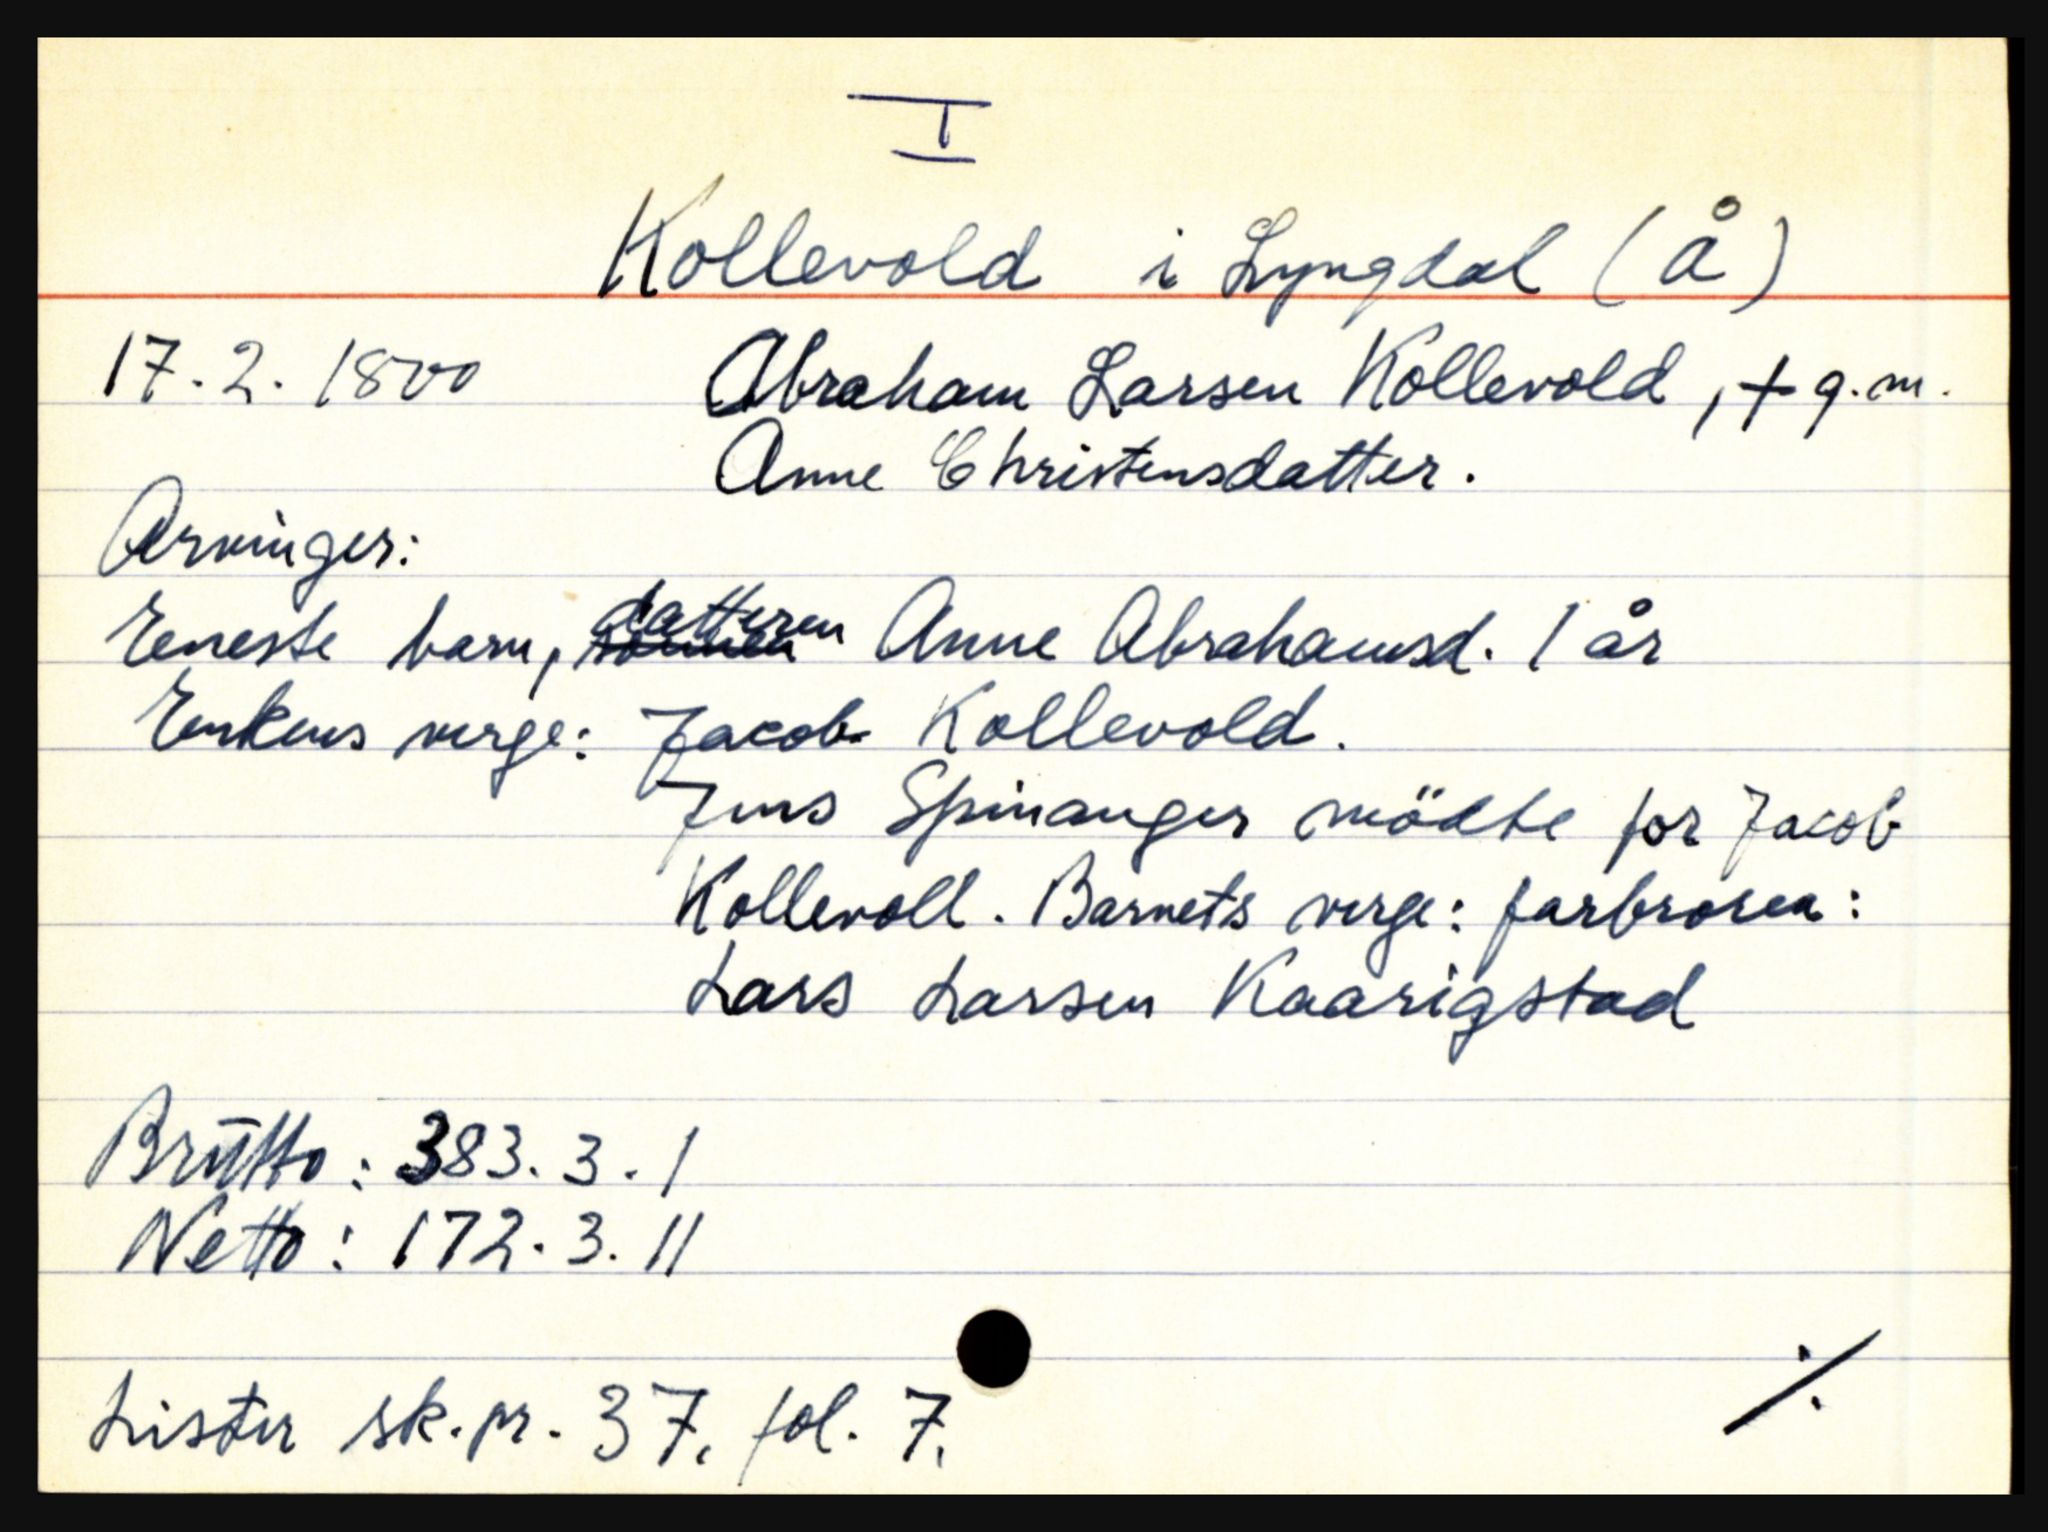 I
Kollevold i Lyngdal (Å)
17.2.1800 Abraham Larsen Kollevold, + g.m.
Anne Christensdatter.
Arvinger:
Eneste barn, datteren Anne Abrahamsd. 1 år
Enkens verge: Jacob Kollevold.
Jens Spinanger mödte for Jacob
Kollevoll. Barnets verge: farbroren:
Lars Larsen Kaarigstad
Brutto: 383.3.1
Netto: 172.3.11
Lister sk.pr. 37, fol. 7.
./.